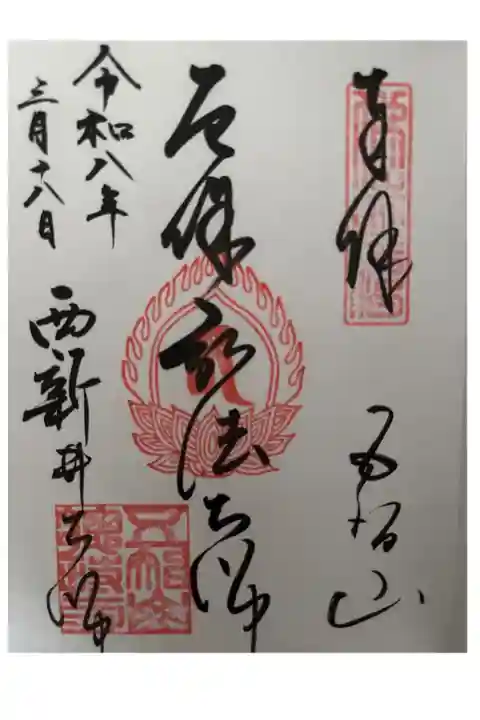 奉拝
五智山
厄除弘法大師
令和八年
三月十八日
西新井大師